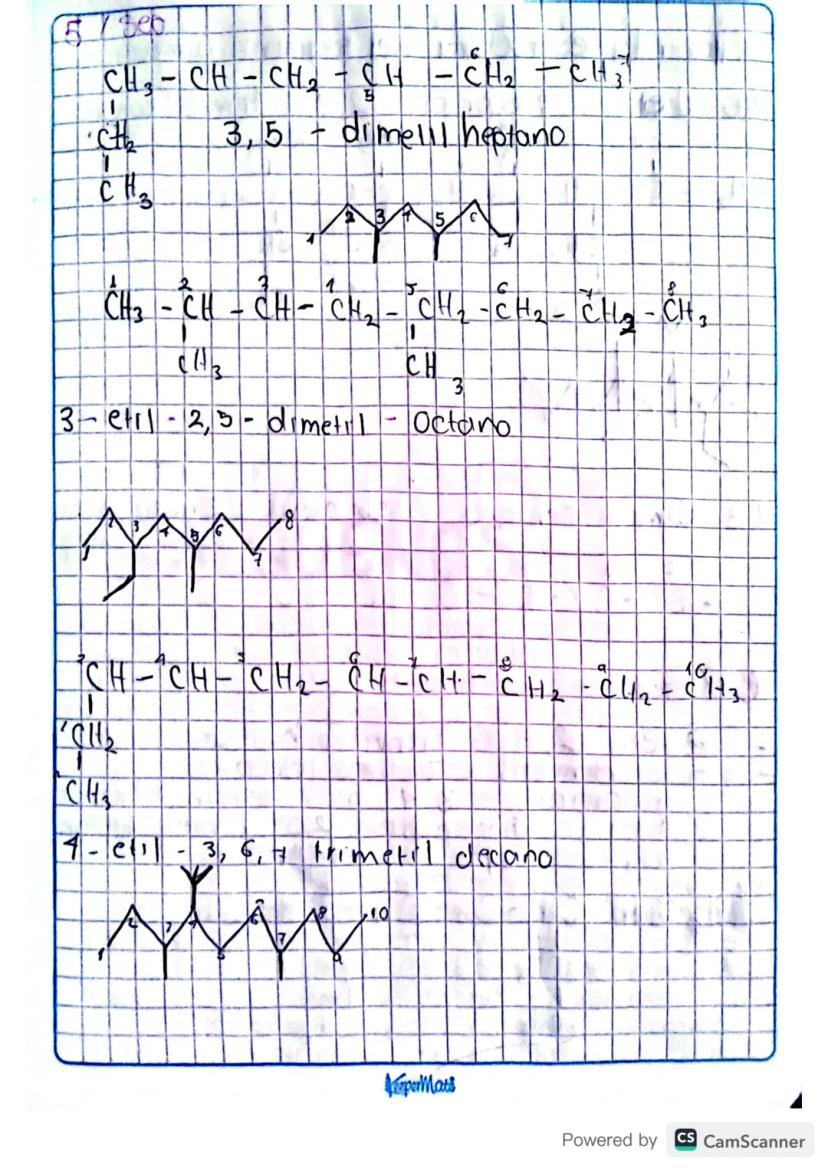 5 / Sep
CH3 - CH - CH2 - CH - CH2 - CH3
5 6 7
CH2 3,5 - dimetil heptano
CH3
1 2 3 4 5 6 7
1 2 3 4 5 6 7 8
CH3 - CH - CH - CH2 - CH2 - CH2 - CH2 - CH3
CH3 CH3
3 - etil - 2,5 - dimetil - Octano
1 2 3 4 5 6 7 8
3 4 5 6 7 8 9 10
CH - CH - CH2 - CH - CH - CH2 - CH2 - CH3
CH2
CH3
4 - etil - 3, 6, 7 trimetil decano
1 2 3 4 5 6 7 8 9 10
KeeperMate
Powered by CS CamScanner